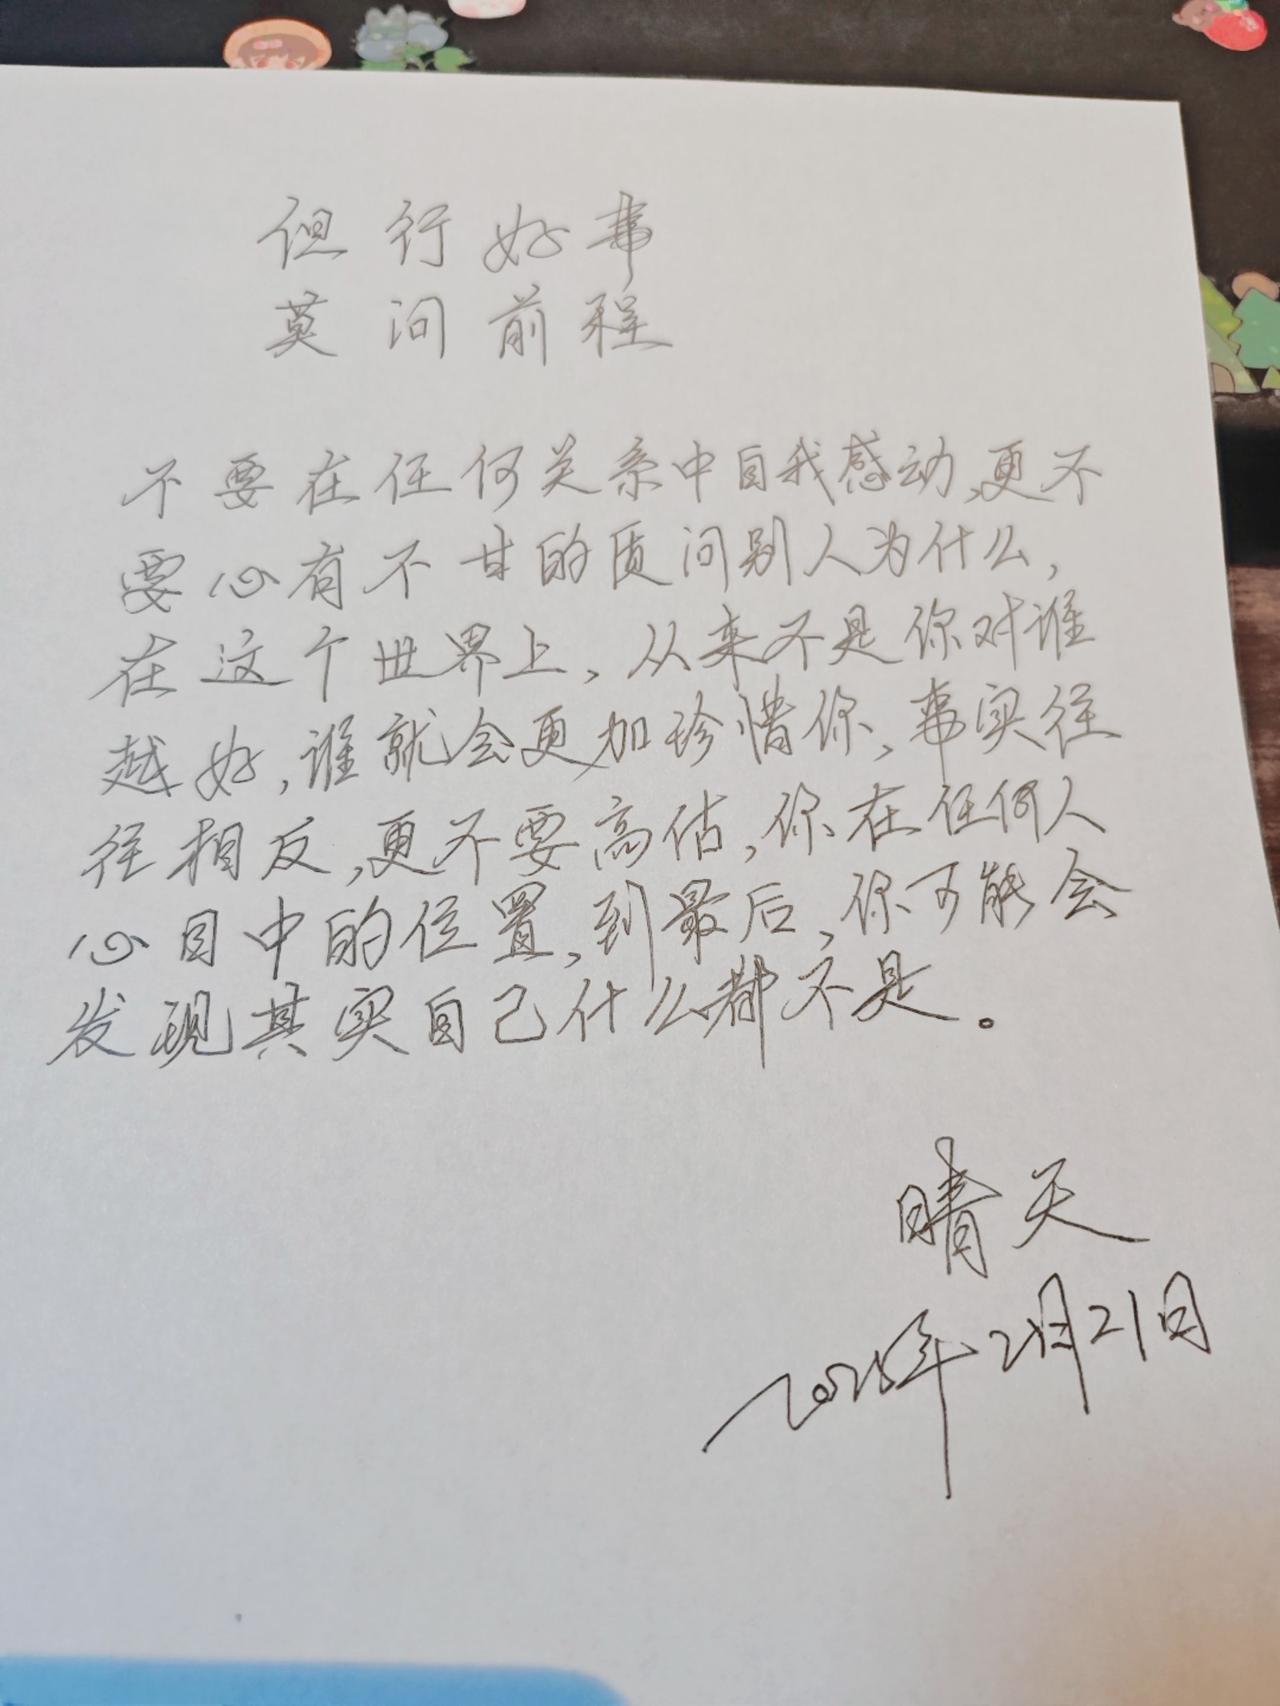 但行好事
莫问前程
不要在任何关系中自我感动、更不
要心有不甘的质问别人为什么,
在这个世界上,从来不是你对谁
越好,谁就会更加珍惜你,事实往
往相反,更不要高估,你在任何人
心目中的位置,到最后,你可能会
发现其实自己什么都不是。
晴天
2025年2月21日